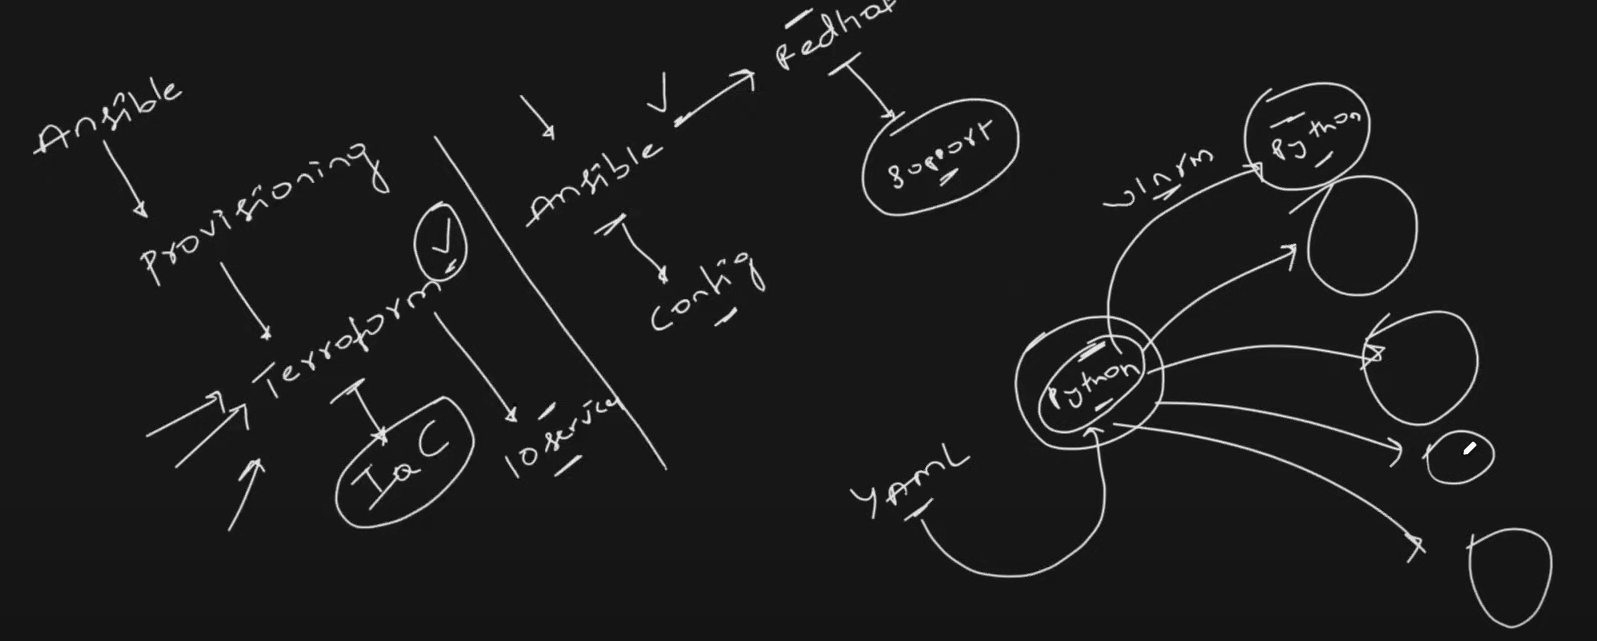 Ansible
Provisioning
Terraform
IaC
10 service
Ansible
Config
Redhat
Support
winrm
Python
Python
YAML